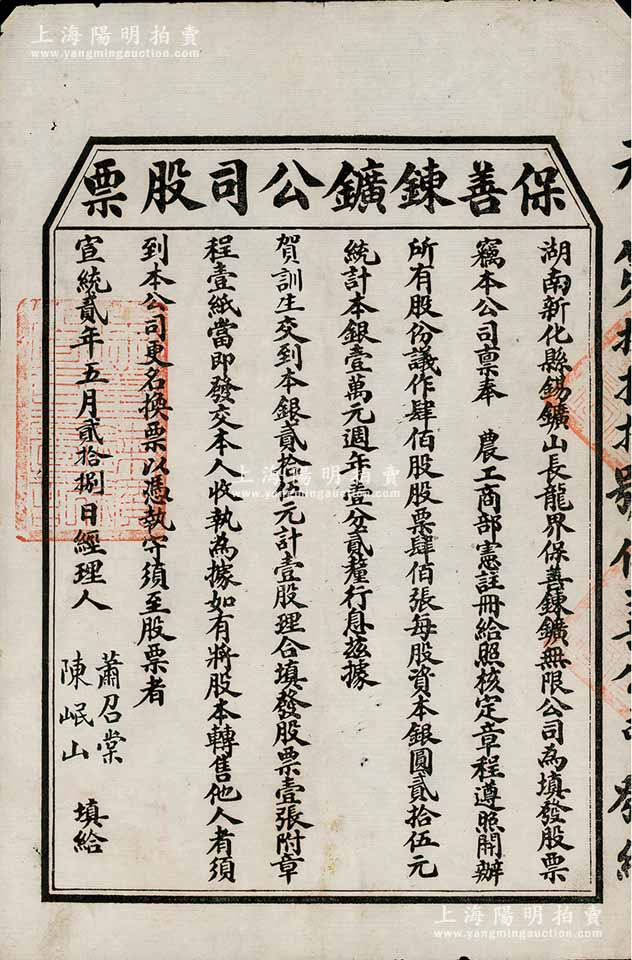 上海陽明拍賣
www.yangmingauction.com
保善鍊鑛公司股票
湖南新化縣錫鑛山長龍界保善鍊鑛無限公司為填發股票
竊本公司稟奉 農工商部憲註冊給照核定章程遵照開辦
所有股份議作肆佰股股票肆佰張每股資本銀圓貳拾伍元
統計本銀壹萬元週年壹分貳釐行息茲據
賀訓生交到本銀貳拾伍元計壹股理合填發股票壹張附章
程壹紙當即發交本人收執為據如有將股本轉售他人者須
到本公司更名換票以憑執守須至股票者
宣統貳年五月貳拾捌日經理人 蕭召棠 陳岷山 填給
上海陽明拍賣
www.yangmingauction.com
上海陽明拍賣
www.yangmingauction.com